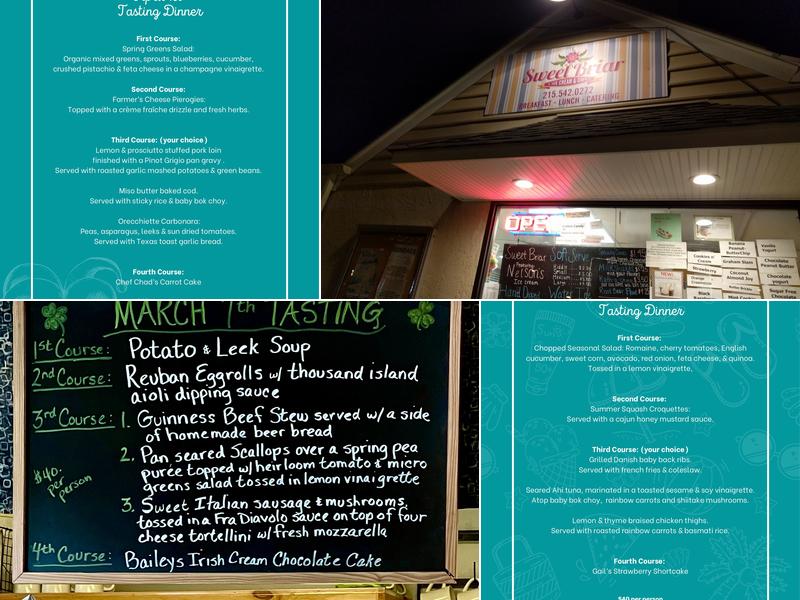 Tasting Dinner
First Course:
Spring Greens Salad:
Organic mixed greens, sprouts, blueberries, cucumber,
crushed pistachio & feta cheese in a champagne vinaigrette.
Second Course:
Farmer's Cheese Pierogies:
Topped with a crème fraîche drizzle and fresh herbs.
Third Course: (your choice)
Lemon & prosciutto stuffed pork loin
finished with a Pinot Grigio pan gravy .
Served with roasted garlic mashed potatoes & green beans.
Miso butter baked cod.
Served with sticky rice & baby bok choy.
Orecchiette Carbonara:
Peas, asparagus, leeks & sun dried tomatoes.
Served with Texas toast garlic bread.
Fourth Course:
Chef Chad's Carrot Cake
Sweet Briar
ICE CREAM &
215.542.0272
BREAKFAST • LUNCH • CATERING
OPEN
Sweet Briar
featuring
Nelson's
Ice Cream
Hand Dipped
Soft Serve
Water
Cookies n' Cream
Strawberry
Banana Peanut-Butter Chip
Graham Slam
Coconut Almond Joy
Vanilla Yogurt
Chocolate Peanut Butter
Chocolate yogurt
Sugar Free Chocolate
MARCH 7th TASTING
1st Course: Potato & Leek Soup
2nd Course: Reuban Eggrolls w/ thousand island
aioli dipping sauce
3rd Course: 1. Guinness Beef Stew served w/ a side
of homemade beer bread
2. Pan seared Scallops over a spring pea
puree topped w/ heirloom tomato & micro
greens salad tossed in lemon vinaigrette
3. Sweet Italian sausage & mushrooms,
tossed in a Fra Diavolo sauce on top of four
cheese tortellini w/ fresh mozzarella
$40.
per
person
4th Course: Baileys Irish Cream Chocolate Cake
Tasting Dinner
First Course:
Chopped Seasonal Salad: Romaine, cherry tomatoes, English
cucumber, sweet corn, avocado, red onion, feta cheese, & quinoa.
Tossed in a lemon vinaigrette,
Second Course:
Summer Squash Croquettes:
Served with a cajun honey mustard sauce.
Third Course: (your choice)
Grilled Danish baby back ribs.
Served with french fries & coleslaw.
Seared Ahi tuna, marinated in a toasted sesame & soy vinaigrette.
Atop baby bok choy, rainbow carrots and shiitake mushrooms.
Lemon & thyme braised chicken thighs.
Served with roasted rainbow carrots & basmati rice.
Fourth Course:
Gail's Strawberry Shortcake
$40 per person